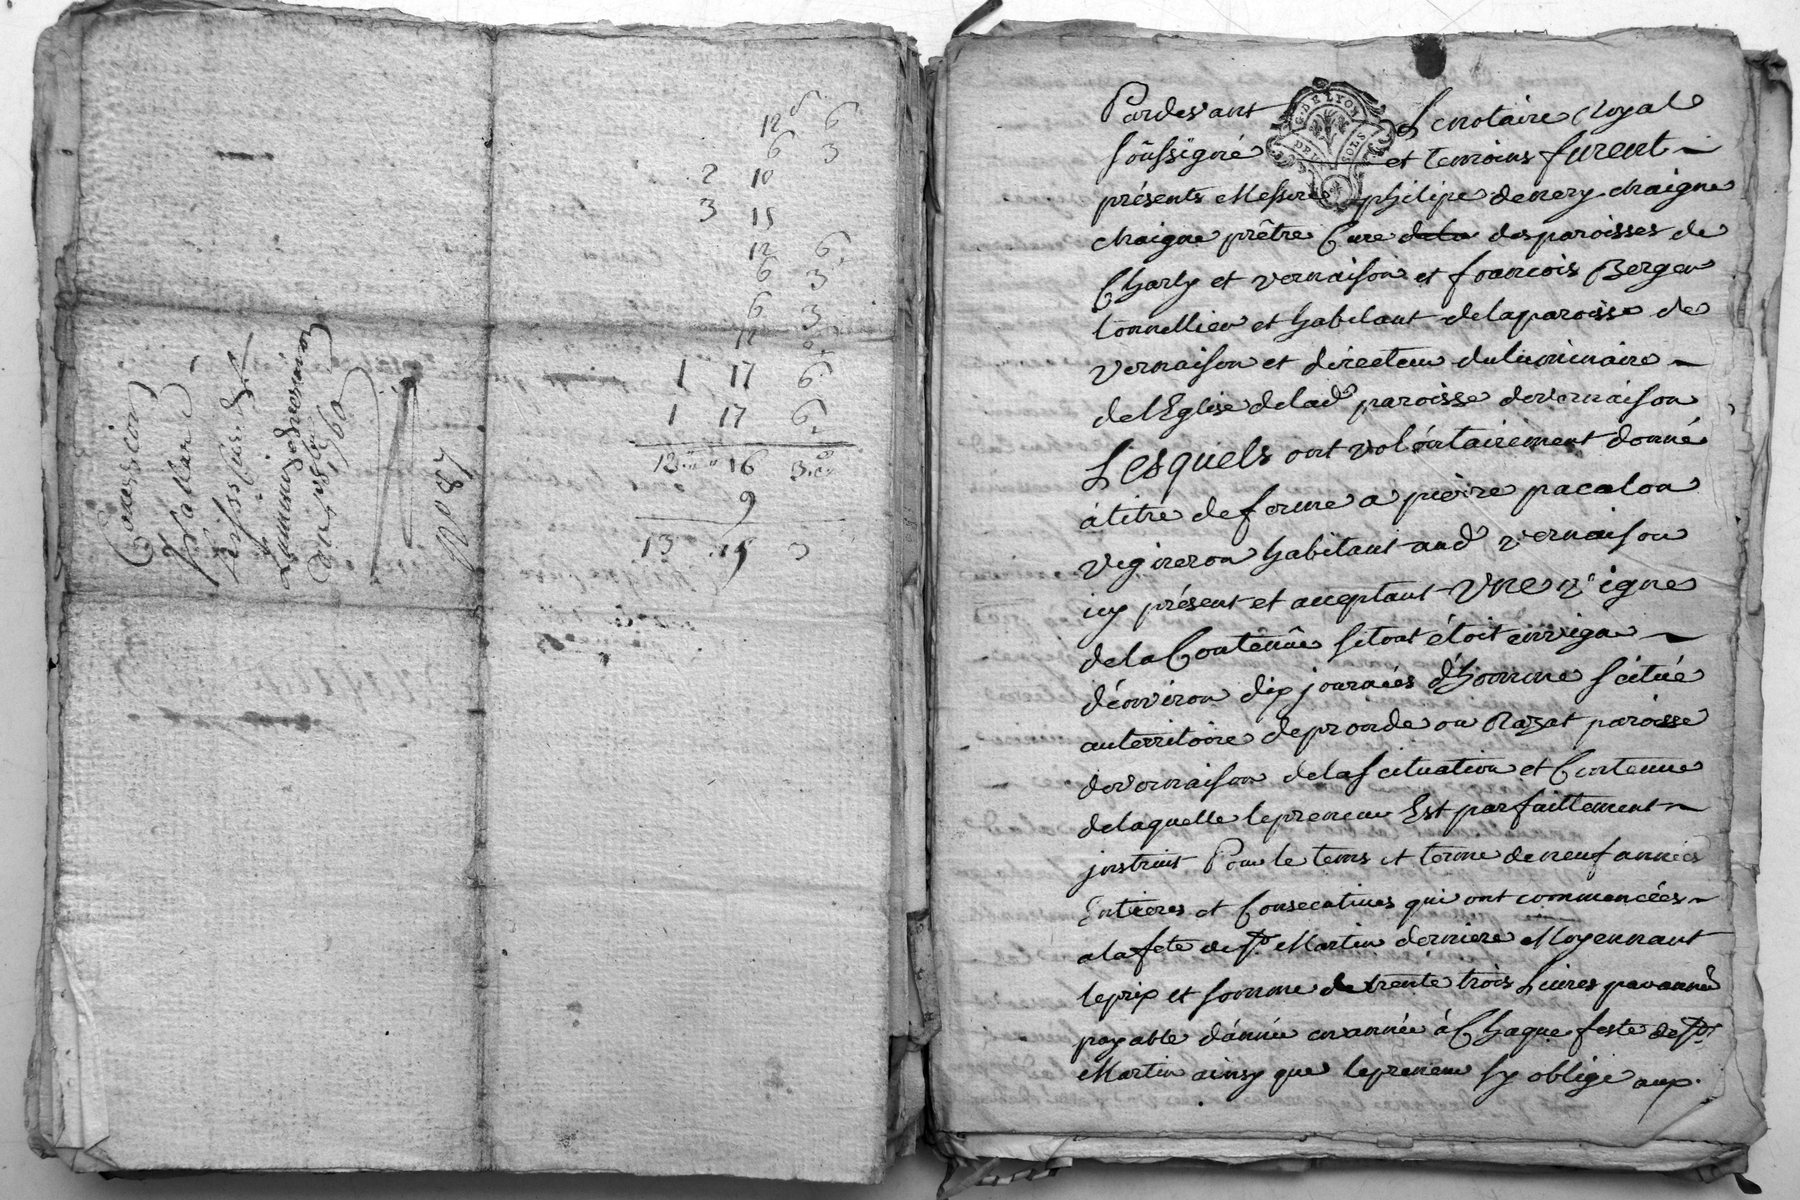 12 6
6 3
2 10
3 15
12 6
6 3
6 3
12 6
1 17 6
1 17 6
12 16 3
9
13 15 3
1760
G. DE LYON
DEUX SOLS
Pardevant Le notaire Royal
soussigné et temoins furent
présents Messire philipe denery chaigne
chaigne prêtre Curé dela des paroisses de
Charly et vernaison et françois Berger
tonnellier et habitant de la paroisse de
vernaison et directeur du luminaire
de l'Eglise de lad. paroisse de vernaison
Lesquels ont volontairement donné
à titre de ferme a pierre pacalon
vigneron habitant aud. vernaison
icy présent et acceptant Une vigne
de la Contenue si tout étoit en vigne
d'environ dix journées d'homme scitué
au territoire de pronde ou Razat paroisse
de vernaison de la scituation et Contenue
de laquelle le preneur Est parfaittement
instruit Pour le tems et terme de neuf années
Entieres et Consecutives qui ont commencées
a la fete de St Martin derniere Moyennant
le prix et somme de trente trois Livres par année
payable d'année en année à Chaque feste de St
Martin ainsy que le preneur sy oblige aux